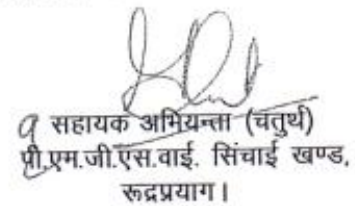 सहायक अभियन्ता (चतुर्थ)
पी.एम.जी.एस.वाई. सिंचाई खण्ड,
रूद्रप्रयाग।